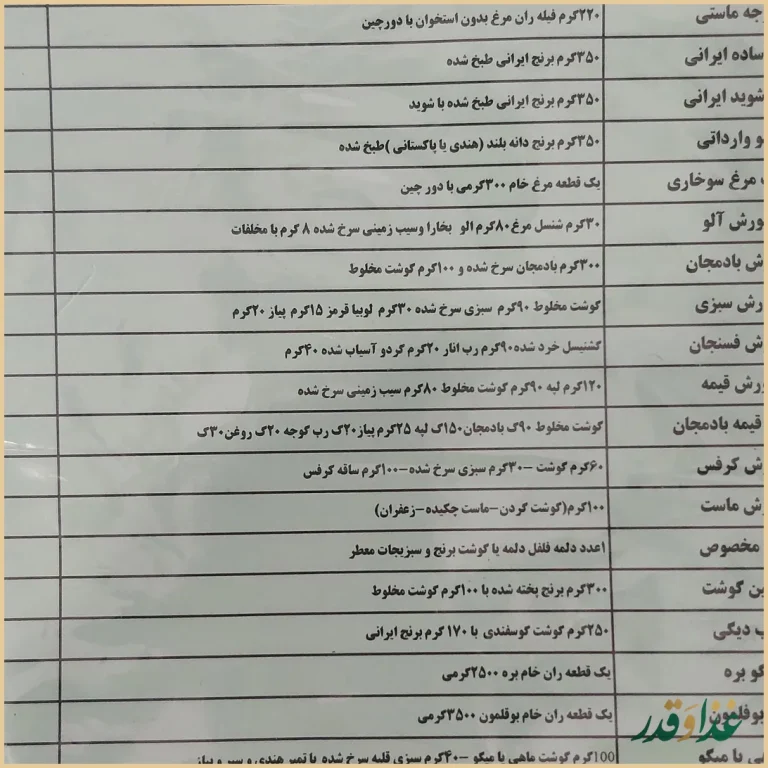 جه ماستی ۲۲۰گرم فیله ران مرغ بدون استخوان با دورچین
ساده ایرانی ۳۵۰گرم برنج ایرانی طبخ شده
شوید ایرانی ۳۵۰گرم برنج ایرانی طبخ شده با شوید
و وارداتی ۳۵۰گرم برنج دانه بلند (هندی یا پاکستانی )طبخ شده
مرغ سوخاری یک قطعه مرغ خام ۳۰۰گرمی با دور چین
ورش آلو ۳۰گرم شنسل مرغ۸۰گرم الو بخارا وسیب زمینی سرخ شده ۸ گرم با مخلفات
ش بادمجان ۳۰۰گرم بادمجان سرخ شده و ۱۰۰گرم گوشت مخلوط
ورش سبزی گوشت مخلوط ۹۰گرم سبزی سرخ شده ۳۰گرم لوبیا قرمز ۱۵گرم پیاز ۲۰گرم
ش فسنجان گشنیسل خرد شده۹۰گرم رب انار ۲۰گرم گردو آسیاب شده ۴۰گرم
ورش قیمه ۱۲۰گرم لپه ۹۰گرم گوشت مخلوط ۸۰گرم سیب زمینی سرخ شده
قیمه بادمجان گوشت مخلوط ۹۰گ بادمجان۱۵۰گ لپه ۲۵گرم پیاز۲۰گ رب گوجه ۲۰گ روغن۳۰گ
ش کرفس ۶۰گرم گوشت -۳۰گرم سبزی سرخ شده-۱۰۰گرم ساقه کرفس
ش ماست ۱۰۰گرم(گوشت گردن-ماست چکیده-زعفران)
مخصوص ۱عدد دلمه فلفل دلمه با گوشت برنج و سبزیجات معطر
ین گوشت ۳۰۰گرم برنج پخته شده با ۱۰۰گرم گوشت مخلوط
ب دیگی ۲۵۰گرم گوشت گوسفندی با ۱۷۰ گرم برنج ایرانی
گو بره یک قطعه ران خام بره ۲۵۰۰گرمی
بوقلمون یک قطعه ران خام بوقلمون ۳۵۰۰گرمی
ی یا میگو 100گرم گوشت ماهی یا میگو -۴۰گرم سبزی قلیه سرخ شده با تمبر هندی و سیر و پیاز
غذا و قدر